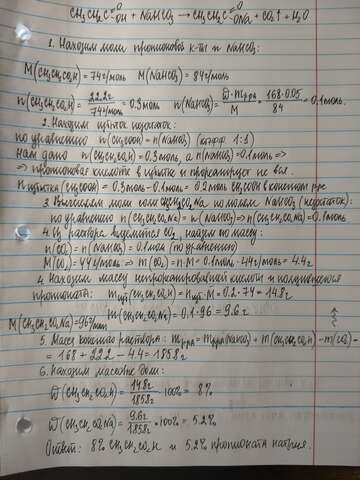 CH₃CH₂C(=O)OH + NaHCO₃ → CH₃CH₂C(=O)ONa + CO₂↑ + H₂O
1. Находим моли пропионовой к-ты и NaHCO₃:
M(CH₃CH₂CO₂H) = 74 г/моль M(NaHCO₃) = 84 г/моль
n(CH₃CH₂CO₂H) = 22.2г / 74г/моль = 0.3 моль n(NaHCO₃) = ω·mр-ра / M = 168·0.05 / 84 = 0.1 моль.
2. Находим избыток недостаток:
по уравнению n(CH₃COOH) = n(NaHCO₃) (коэфф. 1:1)
нам дано n(CH₃CH₂CO₂H) = 0.3 моль, а n(NaHCO₃) = 0.1 моль =>
=> пропионовая кислота в избытке и прореагирует не вся.
n избытка (CH₃COOH) = 0.3 моль - 0.1 моль = 0.2 моль CH₃COOH в конечном р-ре
3. Вычисляем моли соли CH₃CH₂CO₂Na по молям NaHCO₃ (недостаток):
по уравнению n(CH₃CH₂CO₂Na) = n(NaHCO₃) => n(CH₃CH₂CO₂Na) = 0.1 моль
4. Из раствора выделяется CO₂, найдём его массу:
n(CO₂) = n(NaHCO₃) = 0.1 моль (по уравнению)
M(CO₂) = 44 г/моль => m(CO₂) = n·M = 0.1 моль · 44 г/моль = 4.4 г
4. Находим массу непрореагировавшей кислоты и получившегося
пропионата: mизб(CH₃CH₂CO₂H) = nизб·M = 0.2·74 = 14.8 г
M(CH₃CH₂CO₂Na) = 96 г/моль m(CH₃CH₂CO₂Na) = 0.1·96 = 9.6 г
5. Масса конечного раствора: mр-ра = mр-ра(NaHCO₃) + m(CH₃CH₂CO₂H) - m(CO₂) =
= 168 + 22.2 - 4.4 = 185.8 г
6. Находим массовые доли:
ω(CH₃CH₂CO₂H) = 14.8г / 185.8г · 100% = 8%
ω(CH₃CH₂CO₂Na) = 9.6г / 185.8г · 100% = 5.2%
Ответ: 8% CH₃CH₂CO₂H и 5.2% пропионата натрия.